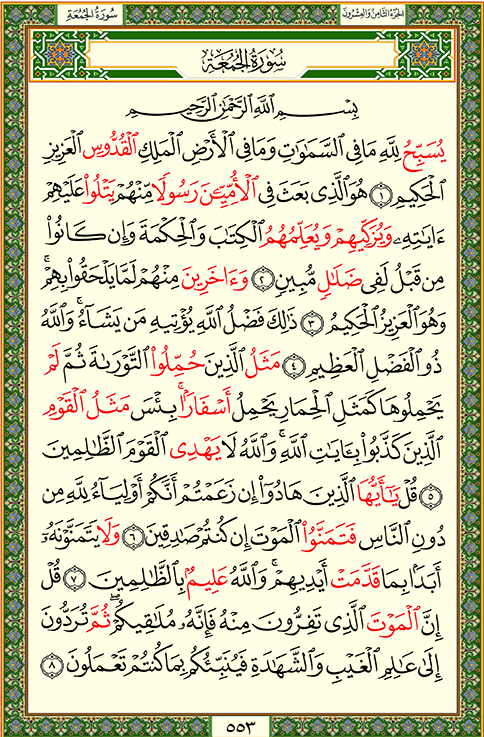 سُورَةُ الجُمُعَةِ
الجُزءُ الثَّامِنُ وَالعِشرُونَ
سُورَةُ الجُمُعَةِ
بِسْمِ اللَّهِ الرَّحْمَٰنِ الرَّحِيمِ
يُسَبِّحُ لِلَّهِ مَا فِي السَّمَٰوَٰتِ وَمَا فِي الْأَرْضِ الْمَلِكِ الْقُدُّوسِ الْعَزِيزِ
الْحَكِيمِ ١ هُوَ الَّذِي بَعَثَ فِي الْأُمِّيِّـۧنَ رَسُولًا مِّنْهُمْ يَتْلُوا۟ عَلَيْهِمْ
ءَايَٰتِهِۦ وَيُزَكِّيهِمْ وَيُعَلِّمُهُمُ الْكِتَٰبَ وَالْحِكْمَةَ وَإِن كَانُوا۟
مِن قَبْلُ لَفِي ضَلَٰلٍ مُّبِينٍ ٢ وَءَاخَرِينَ مِنْهُمْ لَمَّا يَلْحَقُوا۟ بِهِمْ ۚ
وَهُوَ الْعَزِيزُ الْحَكِيمُ ٣ ذَٰلِكَ فَضْلُ اللَّهِ يُؤْتِيهِ مَن يَشَآءُ ۚ وَاللَّهُ
ذُو الْفَضْلِ الْعَظِيمِ ٤ مَثَلُ الَّذِينَ حُمِّلُوا۟ التَّوْرَىٰةَ ثُمَّ لَمْ
يَحْمِلُوهَا كَمَثَلِ الْحِمَارِ يَحْمِلُ أَسْفَارًۢا ۚ بِئْسَ مَثَلُ الْقَوْمِ
الَّذِينَ كَذَّبُوا۟ بِـَٔايَٰتِ اللَّهِ ۚ وَاللَّهُ لَا يَهْدِي الْقَوْمَ الظَّٰلِمِينَ
٥ قُلْ يَٰٓأَيُّهَا الَّذِينَ هَادُوٓا۟ إِن زَعَمْتُمْ أَنَّكُمْ أَوْلِيَآءُ لِلَّهِ مِن
دُونِ النَّاسِ فَتَمَنَّوُا۟ الْمَوْتَ إِن كُنتُمْ صَٰدِقِينَ ٦ وَلَا يَتَمَنَّوْنَهُۥٓ
أَبَدًۢا بِمَا قَدَّمَتْ أَيْدِيهِمْ ۚ وَاللَّهُ عَلِيمٌۢ بِالظَّٰلِمِينَ ٧ قُلْ
إِنَّ الْمَوْتَ الَّذِي تَفِرُّونَ مِنْهُ فَإِنَّهُۥ مُلَٰقِيكُمْ ۖ ثُمَّ تُرَدُّونَ
إِلَىٰ عَٰلِمِ الْغَيْبِ وَالشَّهَٰدَةِ فَيُنَبِّئُكُم بِمَا كُنتُمْ تَعْمَلُونَ ٨
٥٥٣